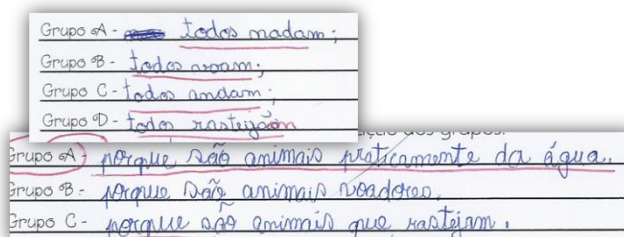 Grupo A - todos nadam;
Grupo B - todos voam;
Grupo C - todos andam;
Grupo D - todos rastejão
dos grupos.
Grupo A) porque são animais praticamente da água.
Grupo B - porque são animais voadores.
Grupo C - porque são animais que rastejam.